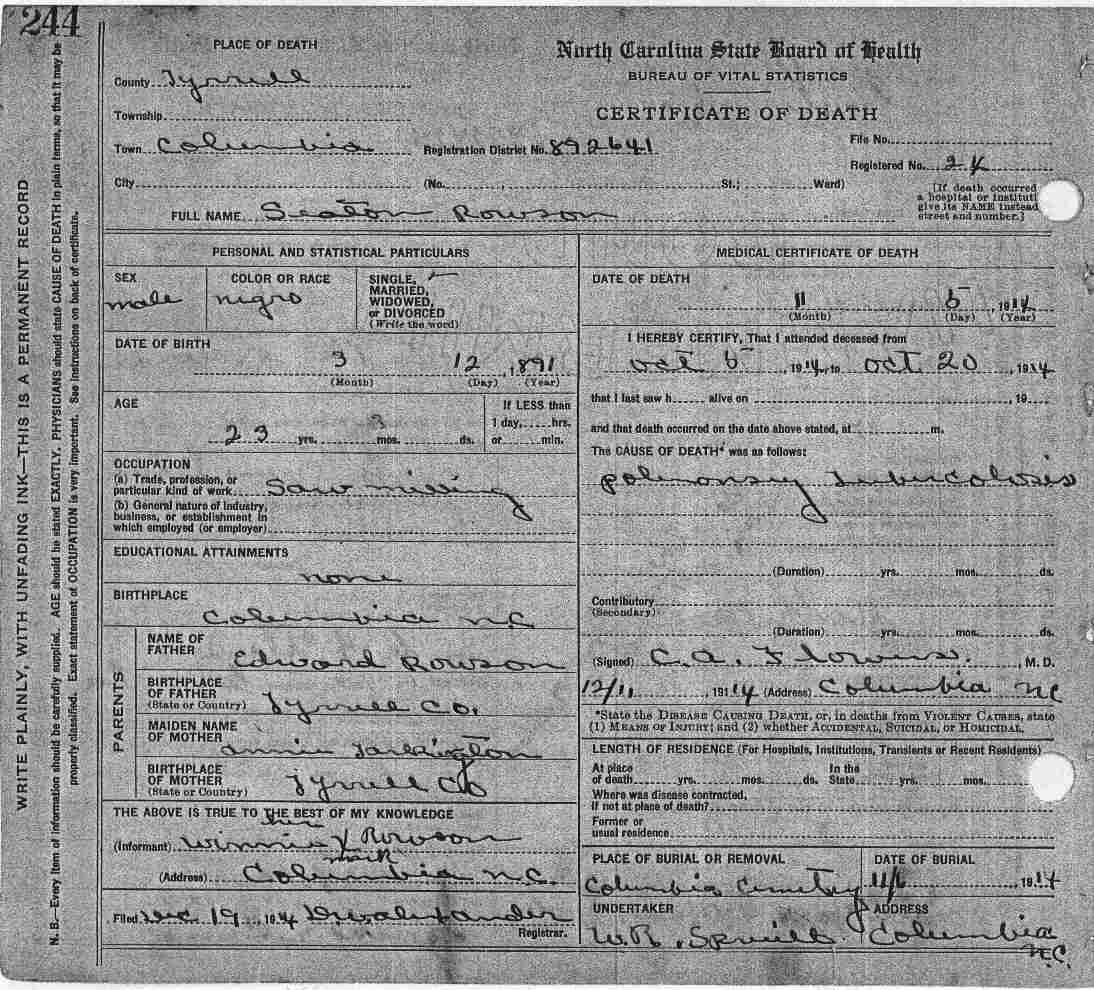 244
WRITE PLAINLY, WITH UNFADING INK—THIS IS A PERMANENT RECORD
N. B.—Every item of information should be carefully supplied. AGE should be stated EXACTLY, PHYSICIANS should state CAUSE OF DEATH in plain terms, so that it may be
properly classified. Exact statement of OCCUPATION is very important. See instructions on back of certificate.
PLACE OF DEATH
County Tyrrell
Township
Town Columbia
City
North Carolina State Board of Health
BUREAU OF VITAL STATISTICS
CERTIFICATE OF DEATH
Registration District No. 892641
File No.
Registered No. 24
(No. , St.; Ward)
[If death occurred
a hospital or instituti
give its NAME instead
street and number.]
FULL NAME Seaton Rowson
PERSONAL AND STATISTICAL PARTICULARS
SEX
male
COLOR OR RACE
negro
SINGLE,
MARRIED,
WIDOWED,
or DIVORCED
(Write the word)
DATE OF BIRTH
3 12 , 1891
(Month) (Day) (Year)
AGE
23 yrs. 3 mos. ds.
If LESS than
1 day, hrs.
or min.
OCCUPATION
(a) Trade, profession, or
particular kind of work Saw milling
(b) General nature of industry,
business, or establishment in
which employed (or employer)
EDUCATIONAL ATTAINMENTS
none
BIRTHPLACE
Columbia N C
PARENTS
NAME OF
FATHER
Edward Rowson
BIRTHPLACE
OF FATHER
(State or Country) Tyrrell Co.
MAIDEN NAME
OF MOTHER
Annie Tarkington
BIRTHPLACE
OF MOTHER
(State or Country) Tyrrell Co
THE ABOVE IS TRUE TO THE BEST OF MY KNOWLEDGE
her
(Informant) Winnie X Rowson
mark
(Address) Columbia N.C.
Filed Dec 19, 1914
Registrar.
MEDICAL CERTIFICATE OF DEATH
DATE OF DEATH
11 5 , 1914
(Month) (Day) (Year)
I HEREBY CERTIFY, That I attended deceased from
Oct 5 , 1914, to Oct. 20 , 1914
that I last saw h alive on , 19
and that death occurred on the date above stated, at m.
The CAUSE OF DEATH* was as follows:
polmonsry Tubercolosis
(Duration) yrs. mos. ds.
Contributory
(Secondary)
(Duration) yrs. mos. ds.
(Signed) C. A. Flowers. , M. D.
12/11 , 1914 (Address) Columbia NC
*State the DISEASE CAUSING DEATH, or, in deaths from VIOLENT CAUSES, state
(1) MEANS OF INJURY; and (2) whether ACCIDENTAL, SUICIDAL, OR HOMICIDAL.
LENGTH OF RESIDENCE (For Hospitals, Institutions, Transients or Recent Residents)
At place
of death yrs. mos. ds.
In the
State yrs. mos.
Where was disease contracted,
if not at place of death?
Former or
usual residence
PLACE OF BURIAL OR REMOVAL
Columbia Cemetry
DATE OF BURIAL
11/6 1914
UNDERTAKER
W. R. Spruill
ADDRESS
Columbia
N.C.